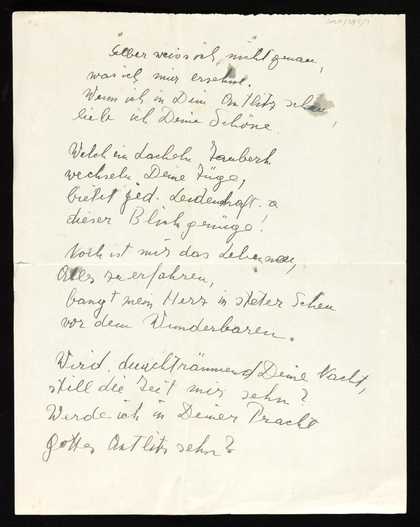 Selber weiss ich nicht genau,
was ich mir ersehne.
Wenn ich in Dein Antlitz schau,
liebe ich Deine Schöne.
Welch ein Lächeln
wechseln Deine Züge,
bietet jed. Leidenschaft
dieser Blick genüge!
Noch ist mir das Leben neu,
Alles zu erfahren,
bangt mein Herz in steter Scheu
vor dem Wunderbaren.
Wird, durchträumend Deine Nacht,
still die Zeit mir
Werde ich in Deiner Pracht
Gottes Antlitz sehn?